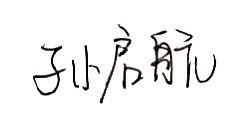 孙启航